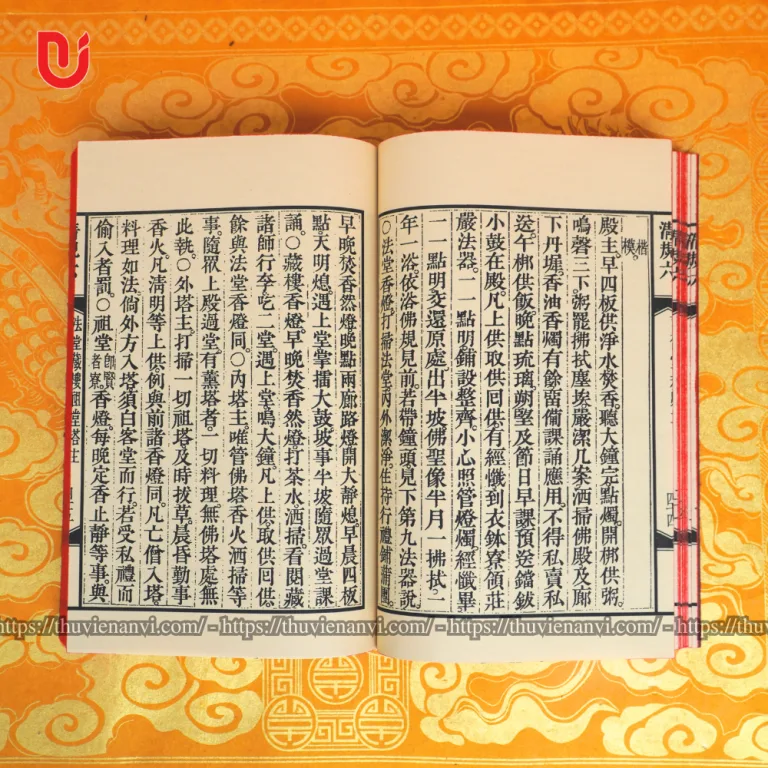 清規六
楷模。
殿主。早四板供淨水焚香。聽大鐘完點燭。開梆供粥。
鳴磬三下。粥罷拂拭塵埃。嚴潔几案。洒掃佛殿及廊
下丹墀。香油香燭有餘。畱備課誦應用。不得私賣私
送。午梆供飯。晚點琉璃。朔朢及節日早課預送鐺鈸
小鼓在殿。凡上供取供回供。有經懺到衣鉢寮領莊
嚴法器。一一點明。鋪設整齊。小心照管燈燭。經懺畢
一一點明。交還原處。出半坡。佛聖像半月一拂拭。二
年一浴。依浴佛規見前。若帶鐘頭。見下第九法器說。
○法堂香燈。打掃法堂內外潔淨。住持行禮鋪蒲團。
早晚焚香然燈。晚點兩廊路燈。開大靜熄。早晨四板
點。天明熄。遇上堂掌擂大鼓。坡事半坡。隨眾過堂課
誦。○藏樓香燈。早晚焚香然燈。打茶水洒掃。看閱藏
諸師行李。吃二堂。遇上堂鳴大鐘。凡上供取供回供。
餘與法堂香燈同。○內塔主。唯管佛塔香火洒掃等
事。隨眾上殿過堂。有薰塔者。一切料理。無佛塔處無
此執。○外塔主。打掃一切祖塔。及時拔草。晨昏勤事
香火。凡清明等上供。例與前諸香燈同。凡亡僧入塔。
料理如法。倘外方入塔。須白客堂而行。若受私禮而
偷入者罰。○祖堂卽賢者寮。香燈。每晚定香止靜等事。與
https://thuvienanvi.com/ - https://thuvienanvi.com/ - https://thuvienanvi.com/